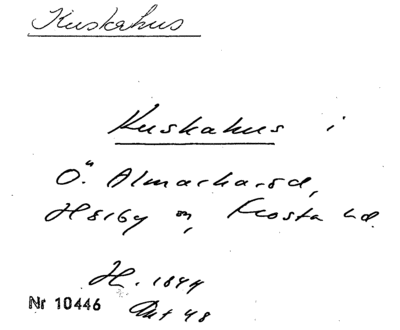 Kuskahus
Kuskahus i
Ö. Almarhasd,
Hörby sn, Frosta hd.
H. 1844
Nr 10446 48